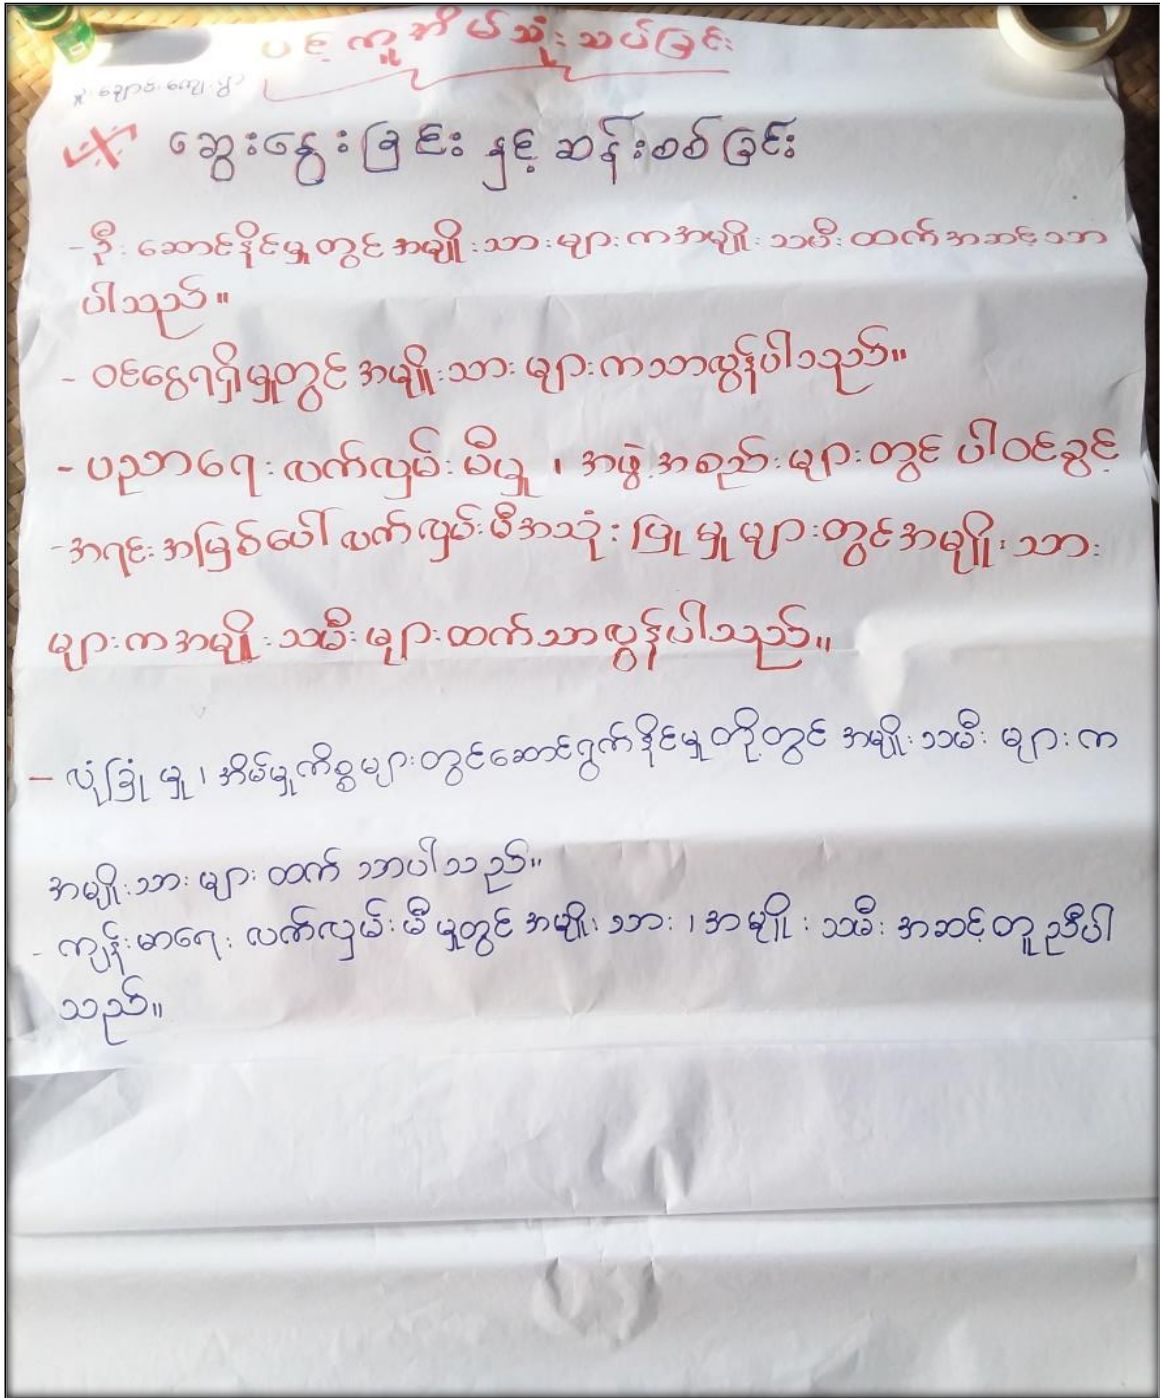 ပင့်ကူအိမ်သုံးသပ်ခြင်း
ချောင်းကျေးရွာ
ဆွေးနွေးခြင်း နှင့် ဆန်းစစ်ခြင်း
- ဦးဆောင်နိုင်မှုတွင် အမျိုးသားများကအမျိုးသမီးထက်အဆင့်သာ
ပါသည်။
- ဝင်ငွေရရှိမှုတွင် အမျိုးသားများကသာလွန်ပါသည်။
- ပညာရေးလက်လှမ်းမီမှု ၊ အဖွဲ့အစည်းများတွင် ပါဝင်ခွင့်
- အရင်းအမြစ်ပေါ် လက်လှမ်းမီအသုံးပြုမှုများတွင်အမျိုးသား
များကအမျိုးသမီးများထက်သာလွန်ပါသည်။
- လုံခြုံမှု ၊ အိမ်မှုကိစ္စများတွင်ဆောင်ရွက်နိုင်မှုတို့တွင် အမျိုးသမီးများက
အမျိုးသားများထက် သာပါသည်။
- ကျန်းမာရေးလက်လှမ်းမီမှုတွင် အမျိုးသား ၊ အမျိုးသမီး အဆင့်တူညီပါ
သည်။